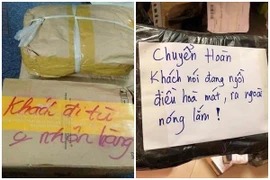 Khách đi tù
ko nhận hàng
Chuyển Hoàn
Khách nói đang ngồi
điều hoà mát, ra ngoài
nóng lắm !